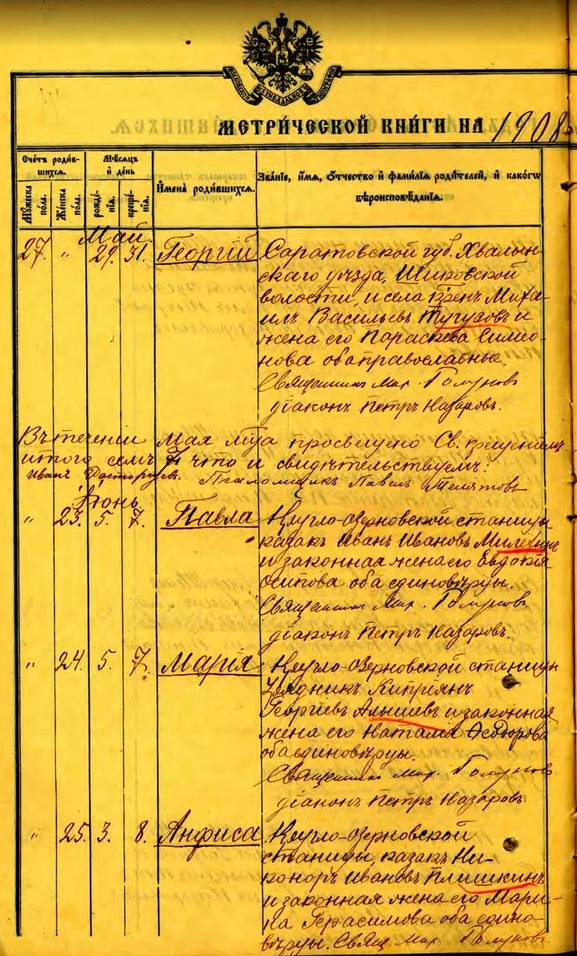 МЕТРИЧЕСКОЙ КНИГИ НА 1908
Счетъ родив-
шихся.
Мѣсяцъ
и день
Мужеска
пола.
Женска
пола.
рожде-
нія.
креще-
нія.
Имена родившихся.
Званіе, имя, отчество и фамилія родителей, и какого
вѣроисповѣданія.
Май
27. " 29. 31. Георгій
Саратовской губ. Хвалын-
скаго уѣзда,
волости, и села Миха-
илъ Васильевъ Тугузовъ и
жена его Параскева Симео-
нова оба православные.
Священникъ Мах. Голунов
діаконъ Петръ Назаровъ.
Въ теченіи Мая м-ца просвещено Св. крещеніемъ
итого семь 7 что и свидѣтельствуемъ:
Иванъ Псаломщикъ Павелъ
Іюнь
" 23. 5. 7. Павла
Кругло-Озерновской станицы
казакъ Иванъ Ивановъ Милехинъ
и законная жена его Евдокія
Осипова оба единовѣрцы.
Священникъ Мах. Голунов
діаконъ Петръ Назаровъ.
" 24. 5. 7. Марія
Кругло-Озерновской станицы
Урядникъ Кипріянъ
Георгіевъ Алишевъ и законная
жена его Наталія Ѳеодорова
оба единовѣрцы.
Священникъ Мах. Голунов
діаконъ Петръ Назаровъ
" 25. 3. 8. Анфиса
Кругло-Озерновской
станицы, казакъ Ни-
коноръ Ивановъ Плишкинъ
и законная жена его Мари-
на Герасимова оба едино-
вѣрцы. Свящ. Мах. Голунов